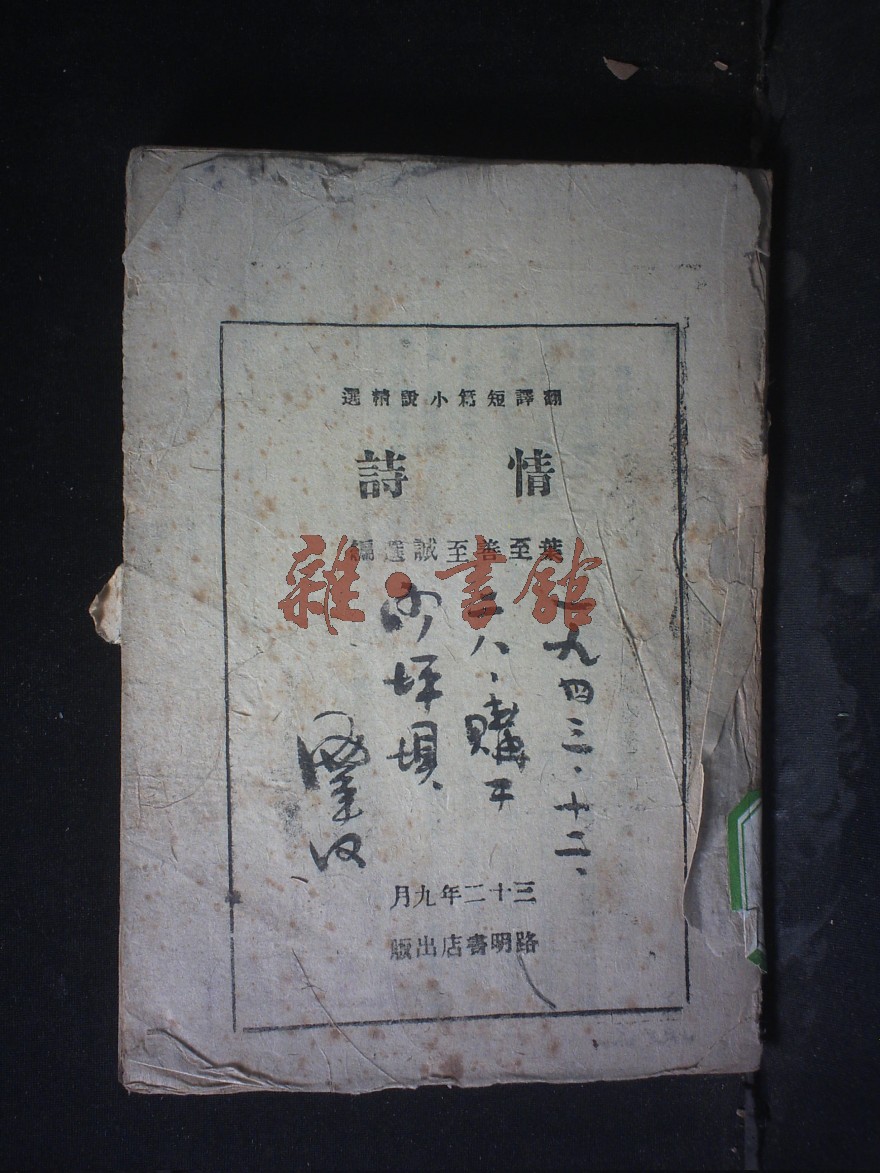 翻譯短篇小說精選
情詩
葉至善至誠選編
雜·書館
一九四三·十二、
二八、購于
沙坪壩
三十二年九月
路明書店出版